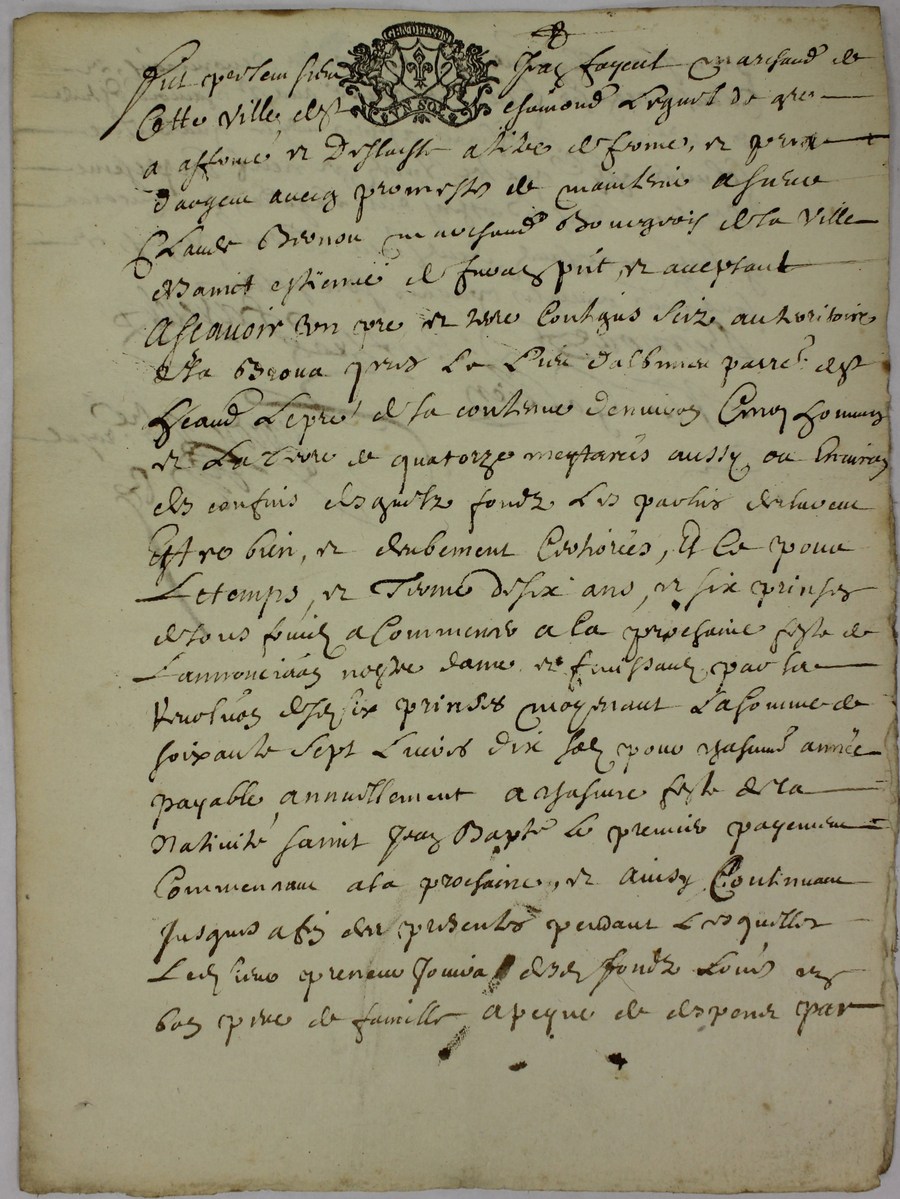 GEN DE LYON
UN SOL
Jean fayeul marchand de
Cette ville de St chamond Lequel de gre
a affermé et a tiltre de ferme, et prix
dargent avecq promesse de maintenir a sieur
Claude marchand Bourgeois de la ville
de Sainct estienne de furan pnt, et acceptant
Ascavoir un pre et terre Contigus Scize au territoire
de la pres Le Lieu parr. de St
heand Le pre de la contenue denviron Cinq hommées
et La terre de quatorze meytarées aussy ou Environ
des confins desquelz fondz Les parties
Estre bien, et deubement Certiorées, Et Ce pour
Le temps, et Terme de six ans, et six prinses
de tous fruictz a Commencer a la prochaine feste de
Lannonciaon nostre dame et finissant par la
revoluon desd six prinses moyenant La somme de
soixante Sept Livres dix solz pour chascune année
payable annuellement a chascune feste de la
Nativité sainct Jean Bapte le premier payement
Commencant a la prochaine, et ainsy Continuant
Jusques a fin des presentes pendant Lesquelles
Led sieur preneur Jouira desd fondz
bon pere de famille a peyne de despens par